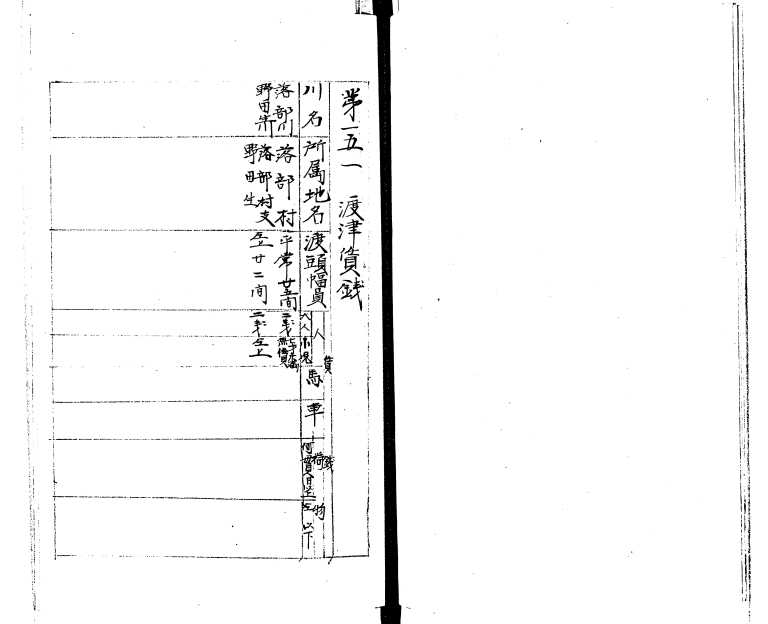 第一五一 渡津賃銭
川名 所属地名 渡頭幅員 賃銭
人 馬 車 荷物
大人 小児 何貫目 以下
落部川 落部村 平常廿五間 二銭 無賃
野田 落部村支 野田生 仝上 廿二間 二銭 仝上